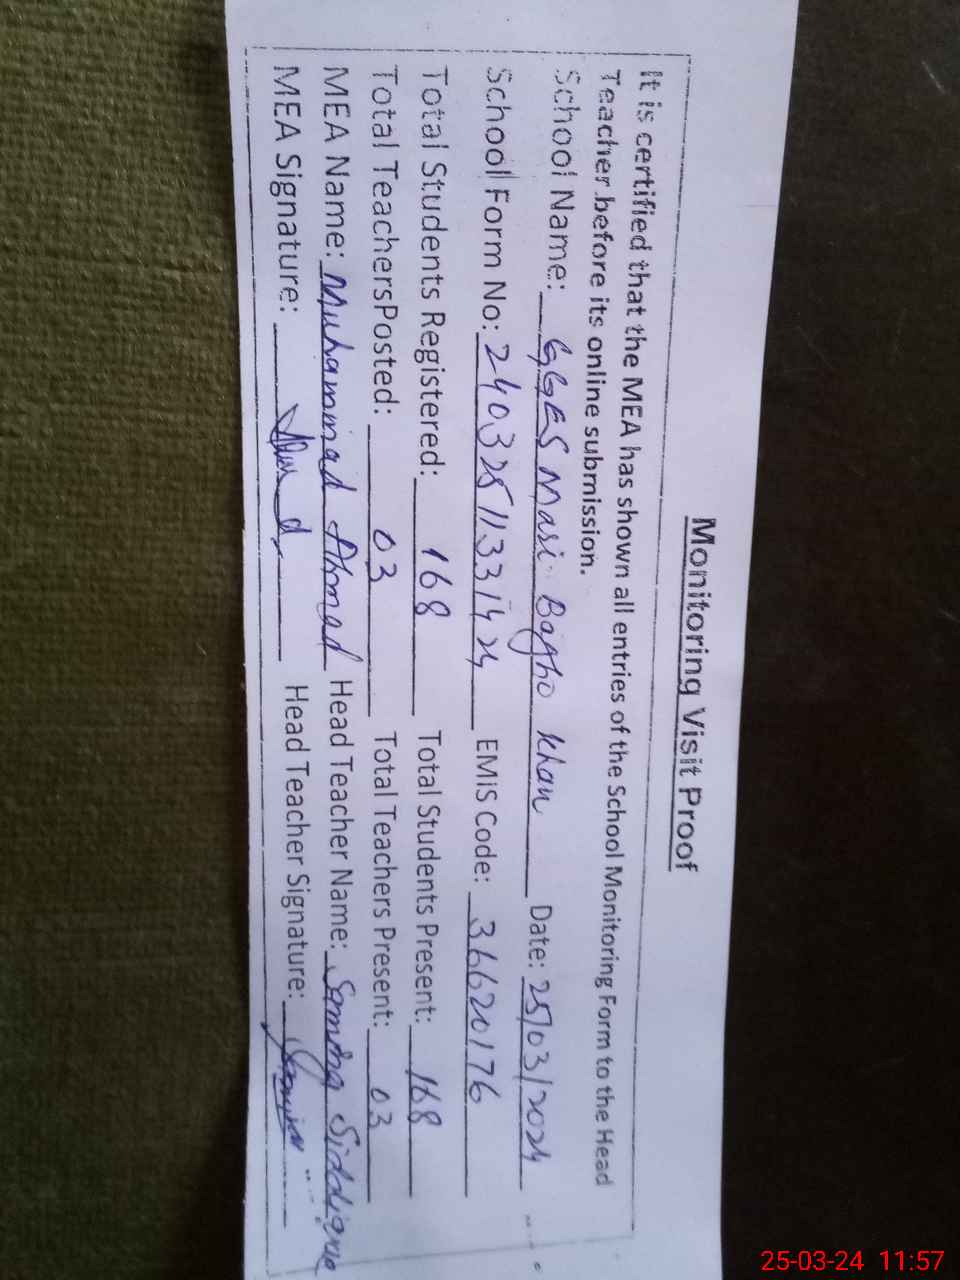 Monitoring Visit Proof
It is certified that the MEA has shown all entries of the School Monitoring Form to the Head
Teacher before its online submission.
School Name: GGES Masi Bagho Khan Date: 25/03/2024
School Form No: 24032511331424 EMIS Code: 36620176
Total Students Registered: 168 Total Students Present: 168
Total TeachersPosted: 03 Total Teachers Present: 03
MEA Name: Muhammad Ahmad Head Teacher Name: Siddique
MEA Signature: Head Teacher Signature:
25-03-24 11:57